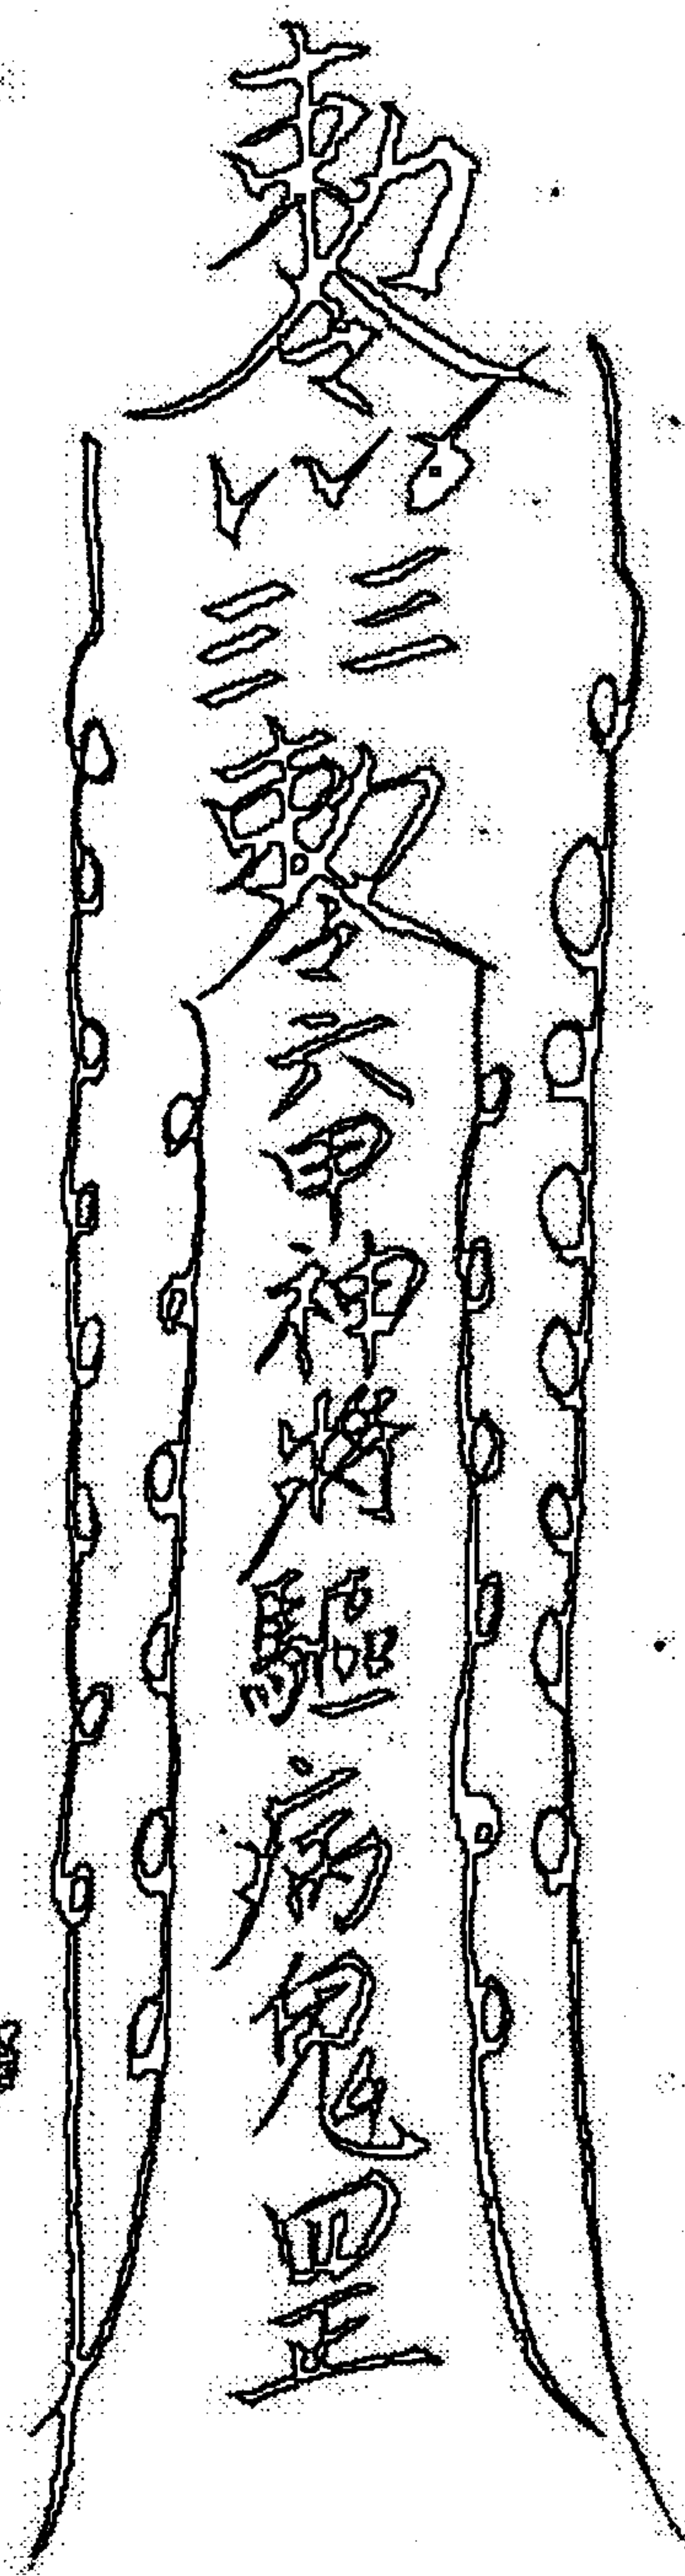 勅令三三勅令六甲神將驅病鬼罡